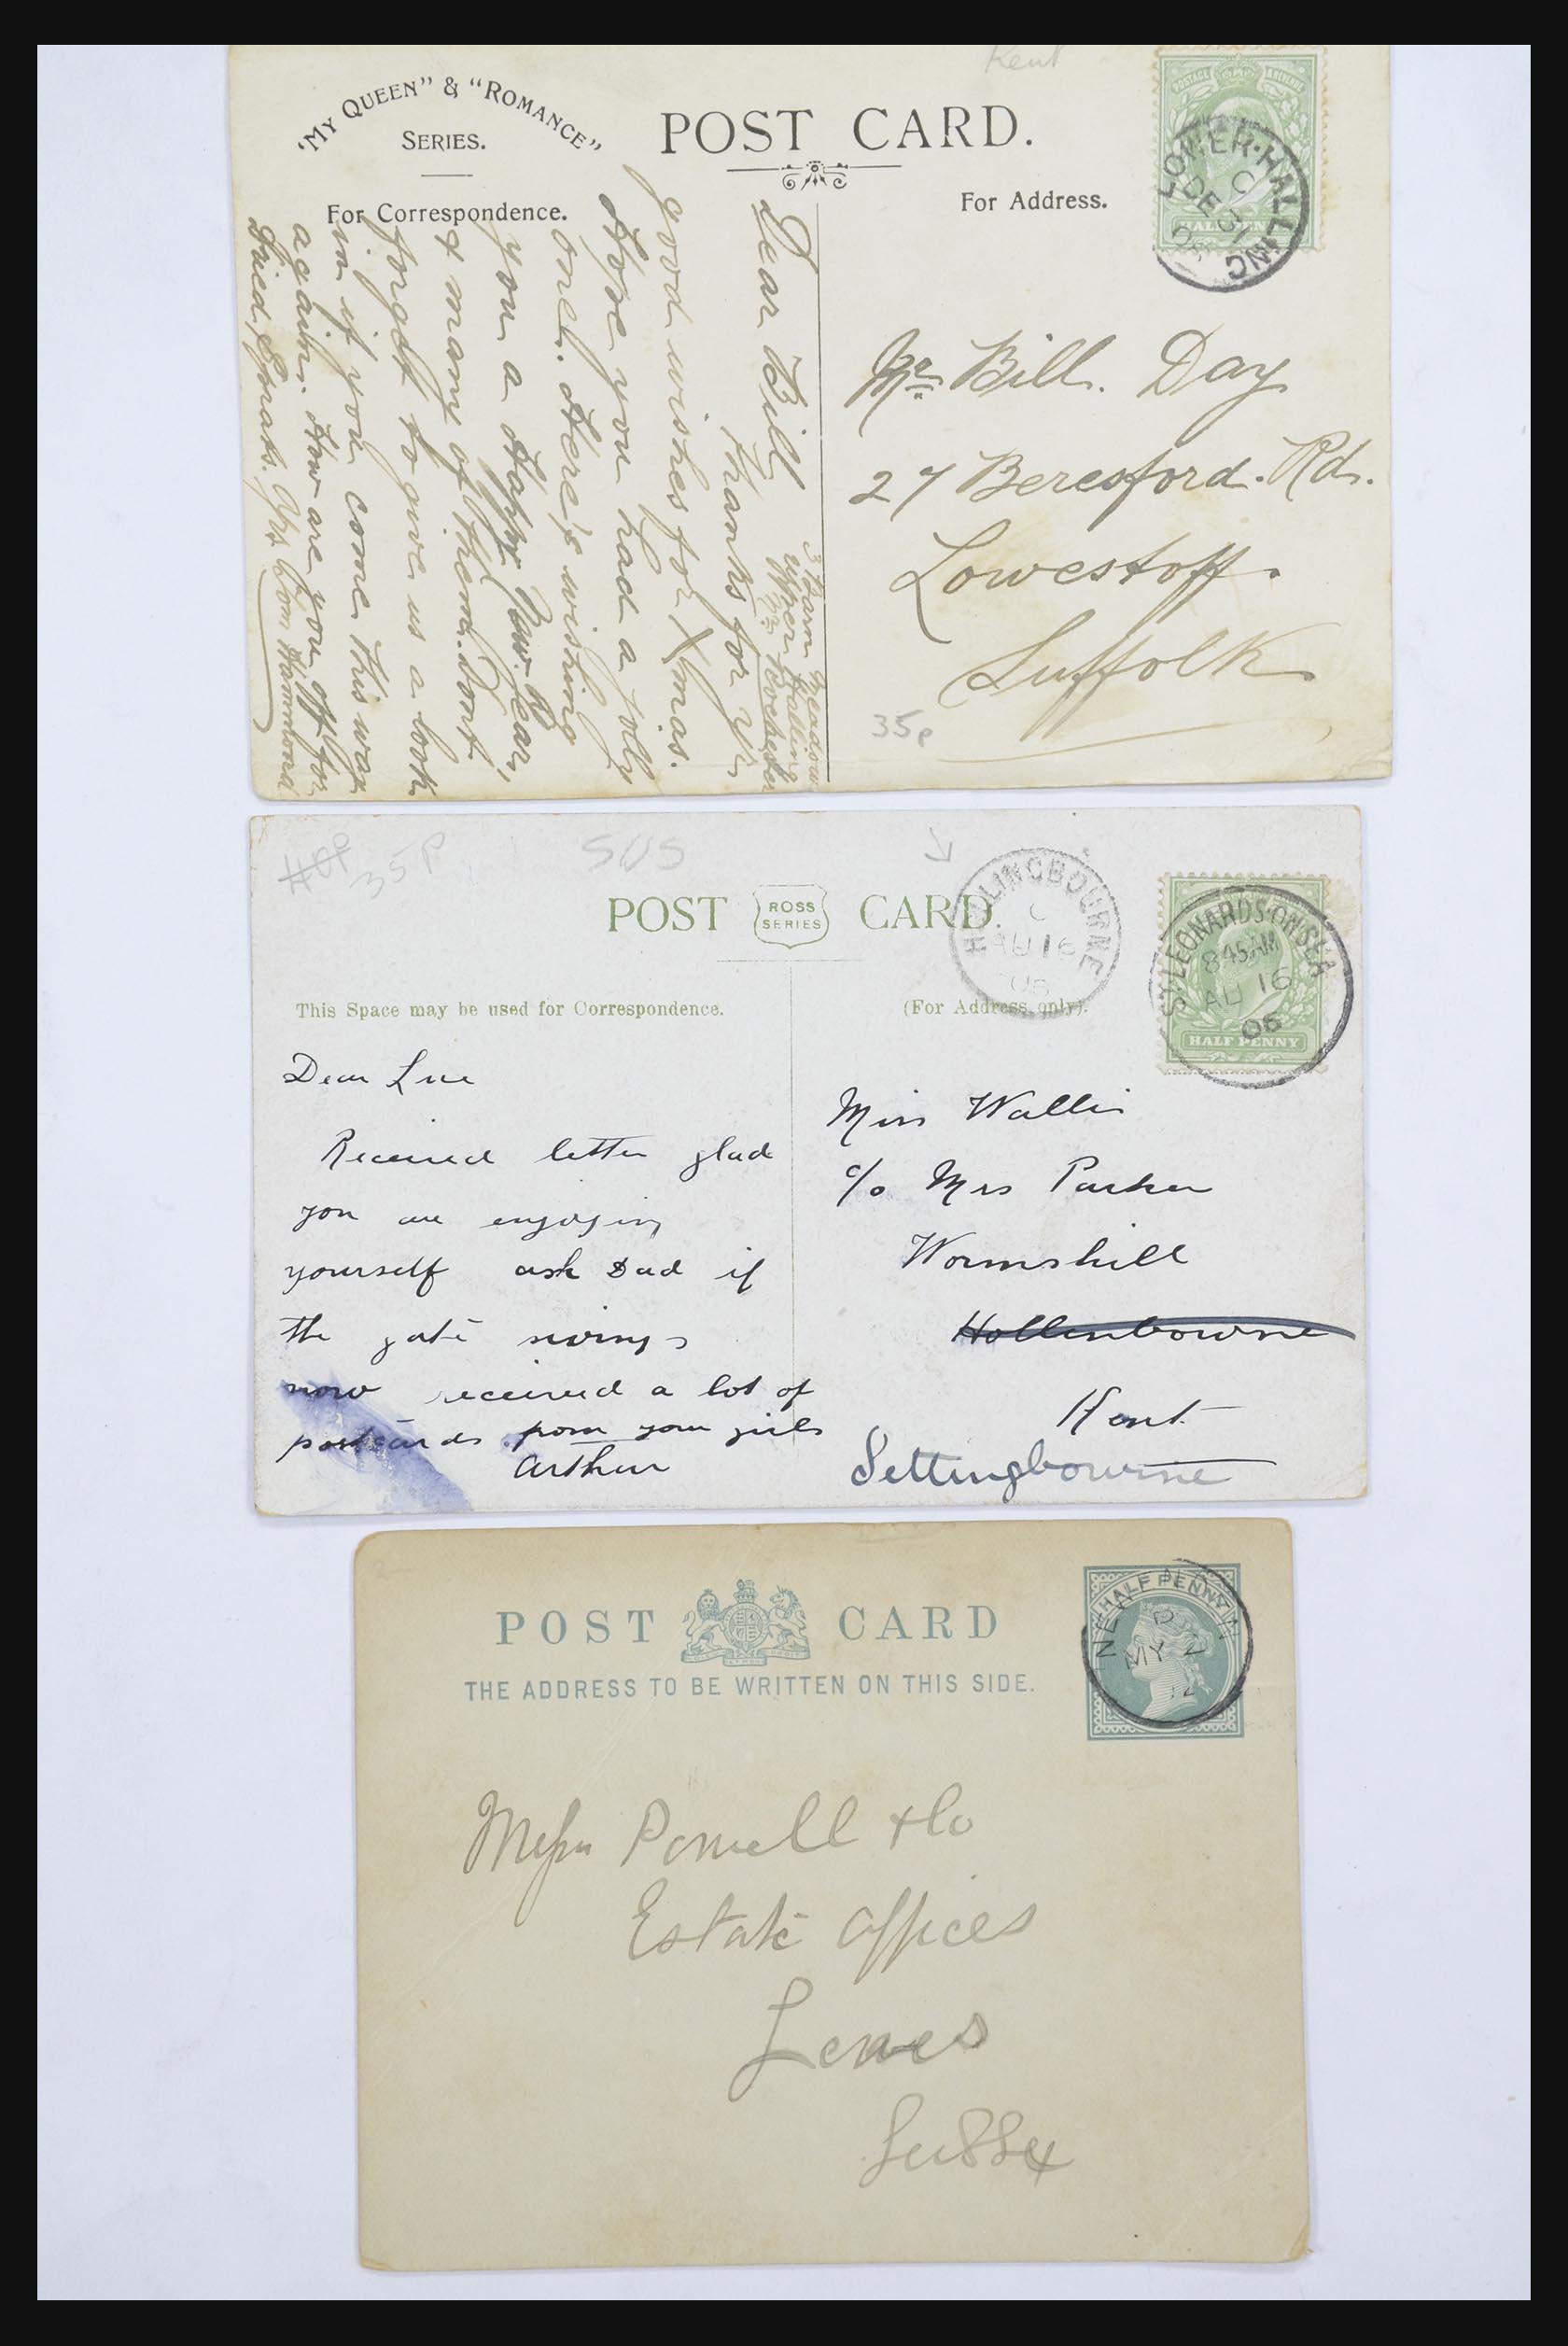 Kent
"MY QUEEN" & "ROMANCE"
SERIES.
POST CARD.
For Correspondence.
For Address.
LOWER·HALLING
C
DE 31
HALFPENNY
Mr Bill. Day
27 Beresford. Rd.
Lowestoff.
Suffolk
35p
3 Barn Meadow
Upper Halling
Nr Rochester
Dear Bill
Thanks for yr
good wishes for Xmas.
Hope you had a jolly
one. Here's wishing
you a Happy New Year,
& many of them. Dont
forget to give us a look
in if you come this way
again. How are you off for
fried Sprats. Yrs Tom Hammond
35P
SUS
POST ROSS SERIES CARD.
HOLLINGBOURNE
C
AU 16
06
ST LEONARDS-ON-SEA
845AM
AU 16
06
HALFPENNY
This Space may be used for Correspondence.
(For Address only).
Dear Lue
Received letter glad
you are enjoying
yourself ask Dad if
the gate swings
now received a lot of
postcards from your girls
Arthur
Miss Wallis
c/o Mrs Parker
Wormshill
Hollenbourne
Kent
Settingbourne
POST CARD
THE ADDRESS TO BE WRITTEN ON THIS SIDE.
HALFPENNY
MY 2
Messrs Powell & Co
Estate Offices
Lewes
Sussex